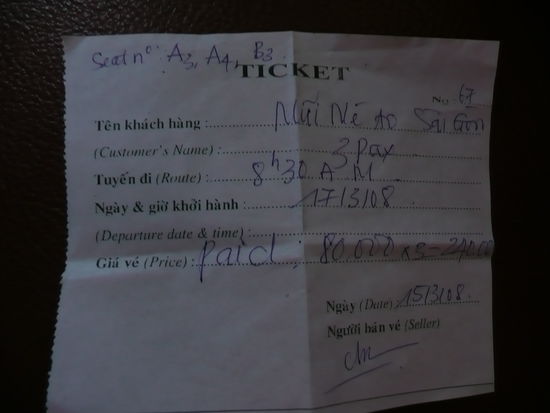 Seat n° A3, A4, B3
TICKET
No: 67
Tên khách hàng : Mũi Né to Sài Gòn
(Customer's Name) : 3 pax
Tuyến đi (Route) : 8h30 AM
Ngày & giờ khởi hành : 17/3/08
(Departure date & time) :
Giá vé (Price) : paid : 80.000 x 3 = 240.000
Ngày (Date) : 15/3/08.
Người bán vé (Seller)